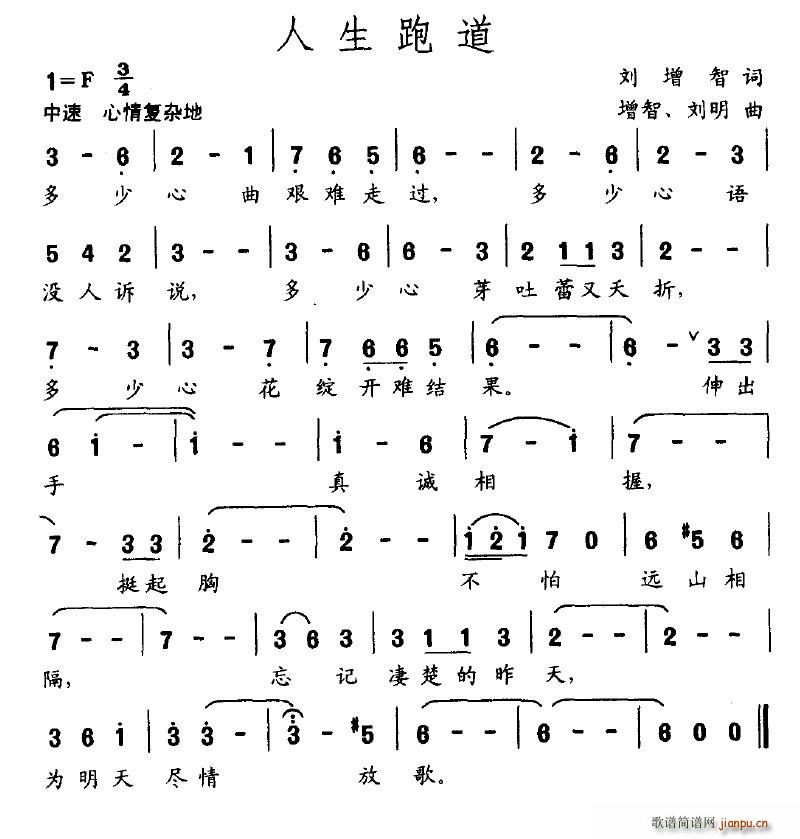 人生跑道
1=F 3/4
刘增智词
中速 心情复杂地
增智、刘明曲
3 - 6 | 2 - 1 | 7 6 5 | 6 - - | 2 - 6 | 2 - 3 |
多少心曲艰难走过,多少心语
5 4 2 | 3 - - | 3 - 6 | 6 - 3 | 2 1 1 3 | 2 - - |
没人诉说,多少心芽吐蕾又夭折,
7 - 3 | 3 - 7 | 7 6 6 5 | 6 - - | 6 - ∨ 3 3 |
多少心花绽开难结果。伸出
6 i - | i - - | i - 6 | 7 - i | 7 - - |
手真诚相握,
7 - 3 3 | 2 - - | 2 - - | i 2 i 7 0 | 6 #5 6 |
挺起胸不怕远山相
7 - - | 7 - - | 3 6 3 | 3 1 1 3 | 2 - - | 2 - - |
隔,忘记凄楚的昨天,
3 6 i | 3 3 - | 3 - #5 | 6 - - | 6 - - | 6 0 0 ‖
为明天尽情放歌。
歌谱简谱网 jianpu.cn